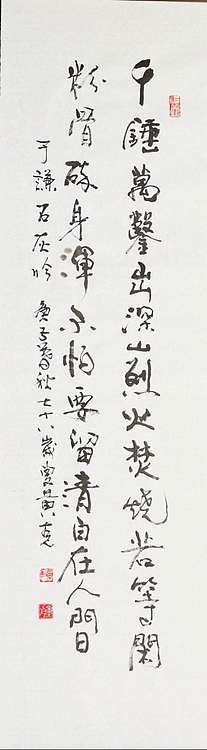 千錘萬鑿出深山烈火焚燒若等閑
粉骨碎身渾不怕要留清白在人間
于謙石灰吟 庚子 七十八歲